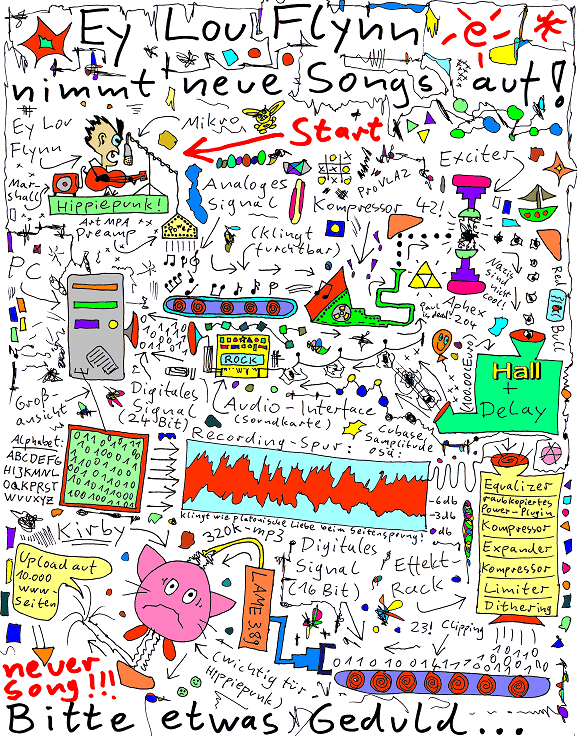 Ey Lou Flynn
nimmt neue Songs auf!
Ey Lou
Flynn
Mikro
Start
Exciter
Marshall
Hippiepunk!
ArtMPA
Preamp
Analoges
Signal
(klingt
furchtbar)
ProVLAZ
Kompressor 42!
Nazis sind nicht cool!
Red Bull
PC
ROCK
Aphex
204
Hall
+
Delay
Groß-
ansicht
Digitales
Signal
(24 Bit)
Audio-Interface
(Soundkarte)
Cubase,
Samplitude
osä:
Alphabet:
ABCDEFG
HIJKMNL
OQKPRST
WVUXYZ
Recording-Spur:
klingt wie platonische Liebe beim Seitensprung!
-6db
-3db
0db
Equalizer
raubkopiertes
Power-Plugin
Kompressor
Expander
Kompressor
Limiter
Dithering
Kirby
320k mp3
Upload auf
10.000
www-
Seiten
LAME 3.89
Digitales
Signal
(16 Bit)
Effekt-
Rack
23! Clipping
(wichtig für
Hippiepunk)
neuer
song!!!
Bitte etwas Geduld...